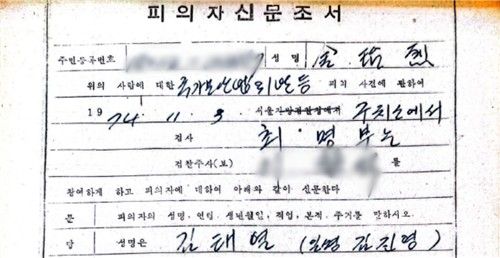 피의자신문조서
주민등록번호 성명 金 泰 烈
위의 사람에 대한 국가보안법위반등 피의 사건에 관하여
19 74. 11. 5 구치소에서
검사 최 명 부는
검찰주사(보) 를
참여하게 하고 피의자에 대하여 아래와 같이 신문한다
문 피의자의 성명, 연령, 생년월일, 직업, 본적, 주거를 말하시오.
답 성명은 김태열 (일명 김진영)